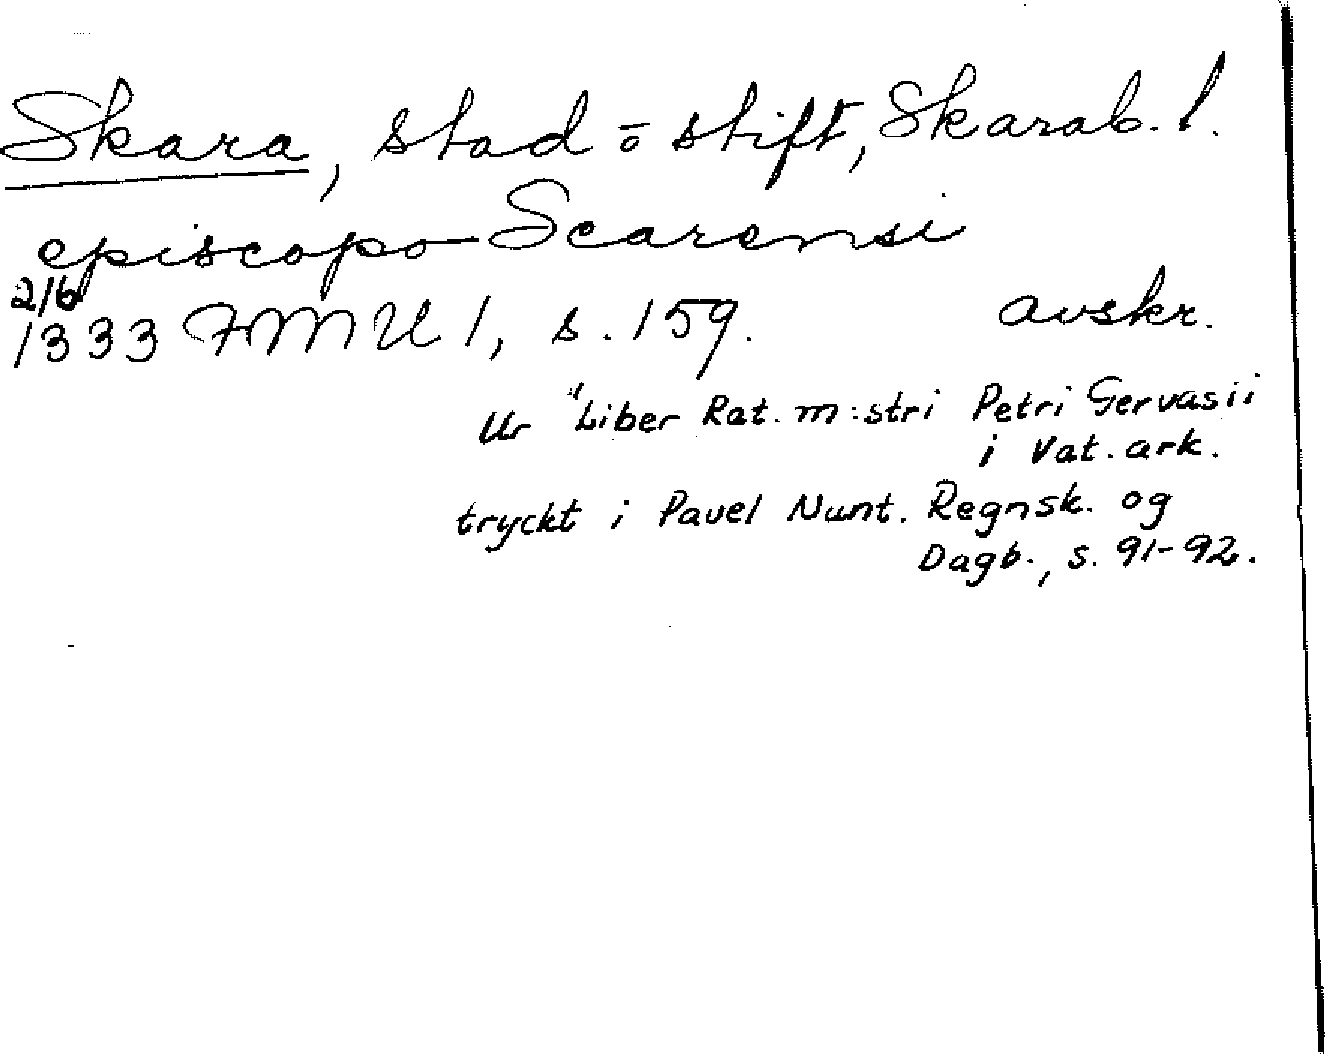 Skara, stad o stift, Skarab. l.
episcopo Scarensi
2/6
1333 FMU 1, s. 159. avskr.
Ur "Liber Rat. m:stri Petri Gervasii
i Vat. ark.
tryckt i Pavel Nunt. Regnsk. og
Dagb., s. 91-92.